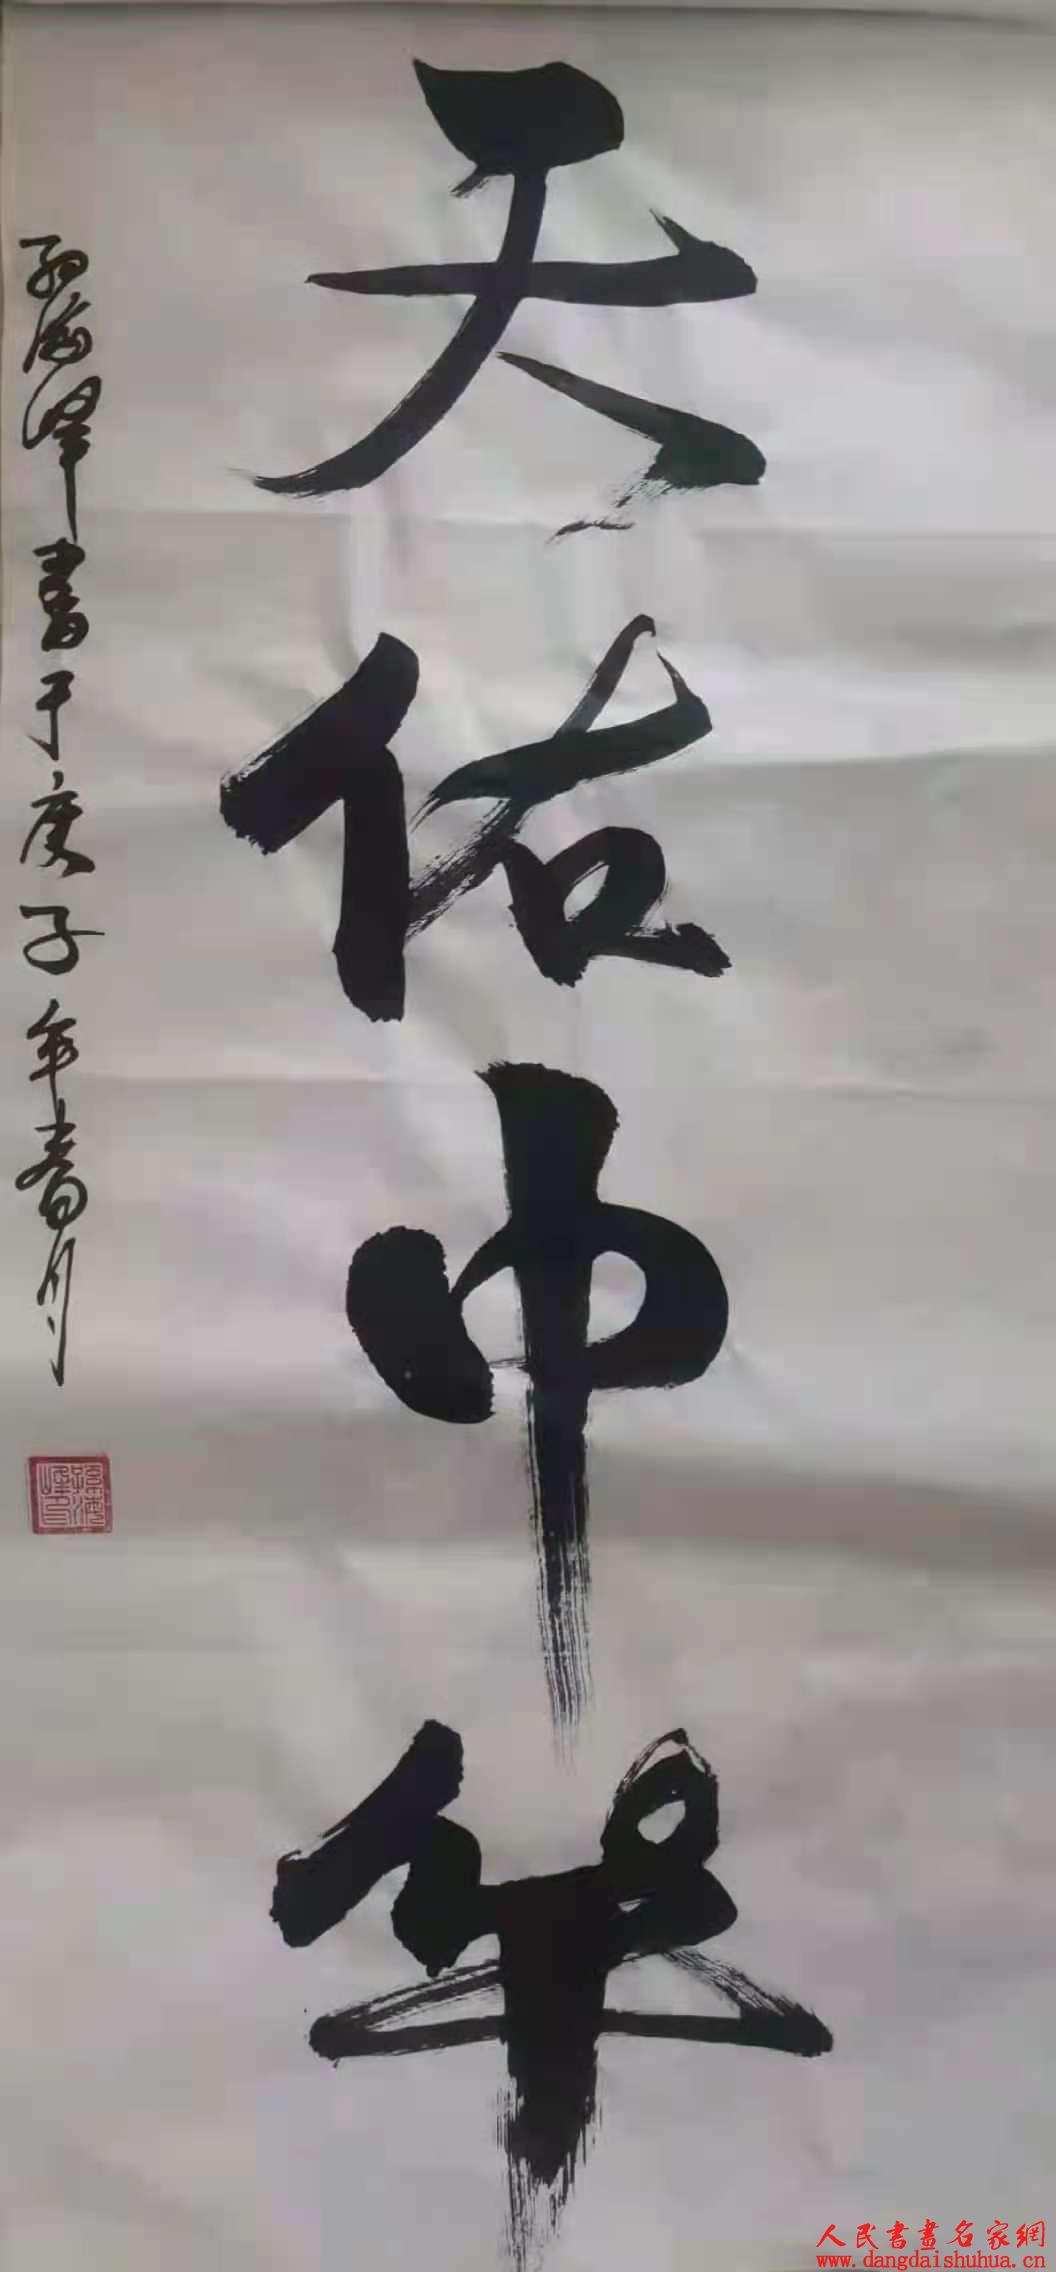 天佑中华
孙海峯書于庚子年春月
孫海峰印
人民書畫名家網
www.dangdaishuhua.cn